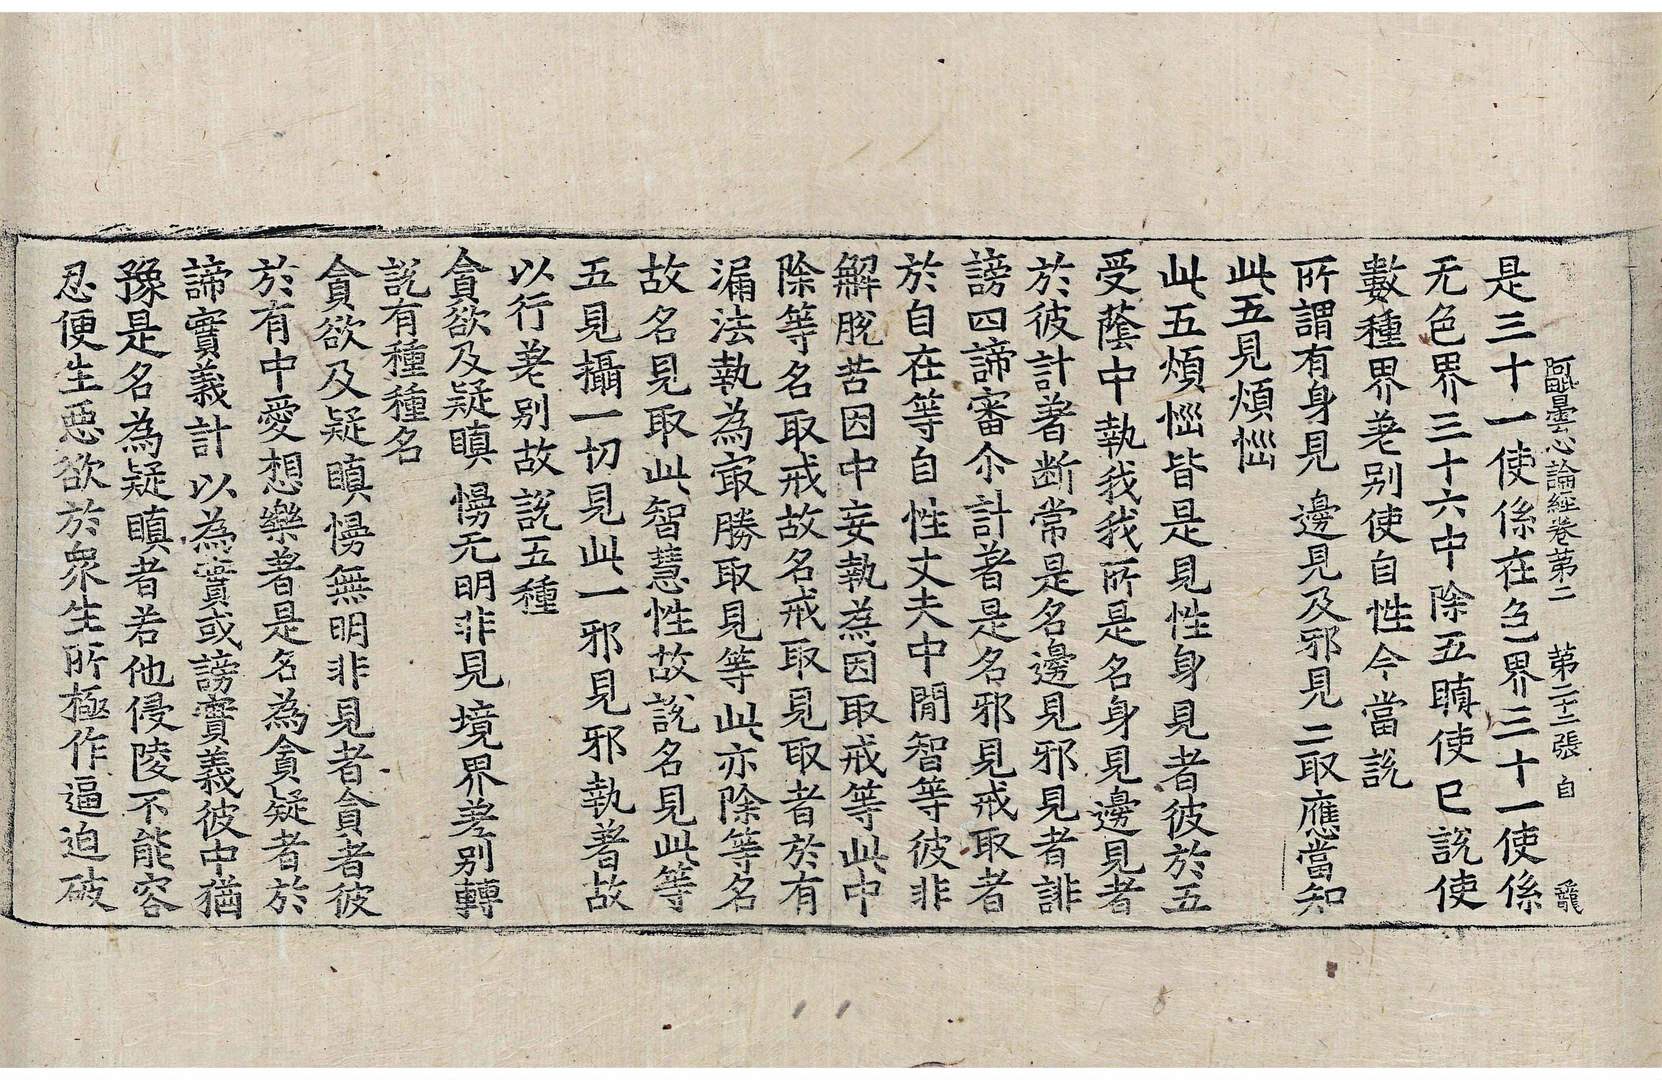 阿毗曇心論經卷苐二　苐二十二張　自
是三十一使係在色界三十一使係
无色界三十六中除五瞋使已說使
數種界差别使自性今當說
所謂有身見　邊見及邪見　二取應當知
此五見煩惱
此五煩惱皆是見性身見者彼於五
受蔭中執我我所是名身見邊見者
於彼計著断常是名邊見邪見者誹
謗四諦審尒計著是名邪見戒取者
於自在等自性丈夫中閒智等彼非
解脫苦因中妄執為因取戒等此中
除等名取戒故名戒取見取者於有
漏法執為㝡勝取見等此亦除等名
故名見取此智慧性故說名見此等
五見攝一切見此一邪見邪執著故
以行差别故說五種
貪欲及疑瞋　慢无明非見　境界差别轉
說有種種名
貪欲及疑瞋慢無明非見者貪者彼
於有中愛想樂著是名為貪疑者於
諦實義計以為實或謗實義彼中猶
豫是名為疑瞋者若他侵陵不能容
忍便生惡欲於眾生所極作逼迫破